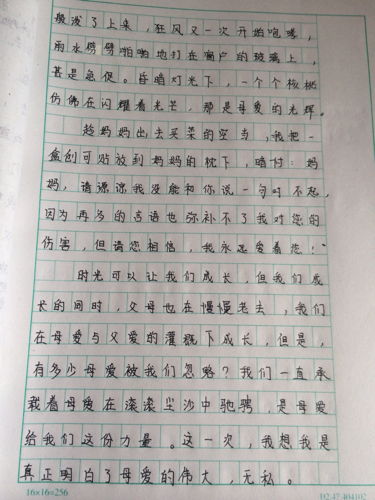 般泼了上来，狂风又一次开始咆哮，
雨水劈劈啪啪地打在窗户的玻璃上，
甚是急促。昏暗灯光下，一个个核桃
仿佛在闪耀着光芒，那是母爱的光辉。
趁妈妈出去买菜的空当，我把一
盒创可贴放到妈妈的枕下，暗忖：妈
妈，请原谅我没能和你说一句对不起，
因为再多的言语也弥补不了我对您的
伤害，但请您相信，我永远爱着您！”
时光可以让我们成长，但我们成
长的同时，父母也在慢慢老去，我们
在母爱与父爱的灌溉下成长，但是，
有多少母爱被我们忽略？我们一直承
载着母爱在滚滚尘沙中驰骋，是母爱
给我们这份力量。这一次，我想我是
真正明白了母爱的伟大，无私。
16×16=256